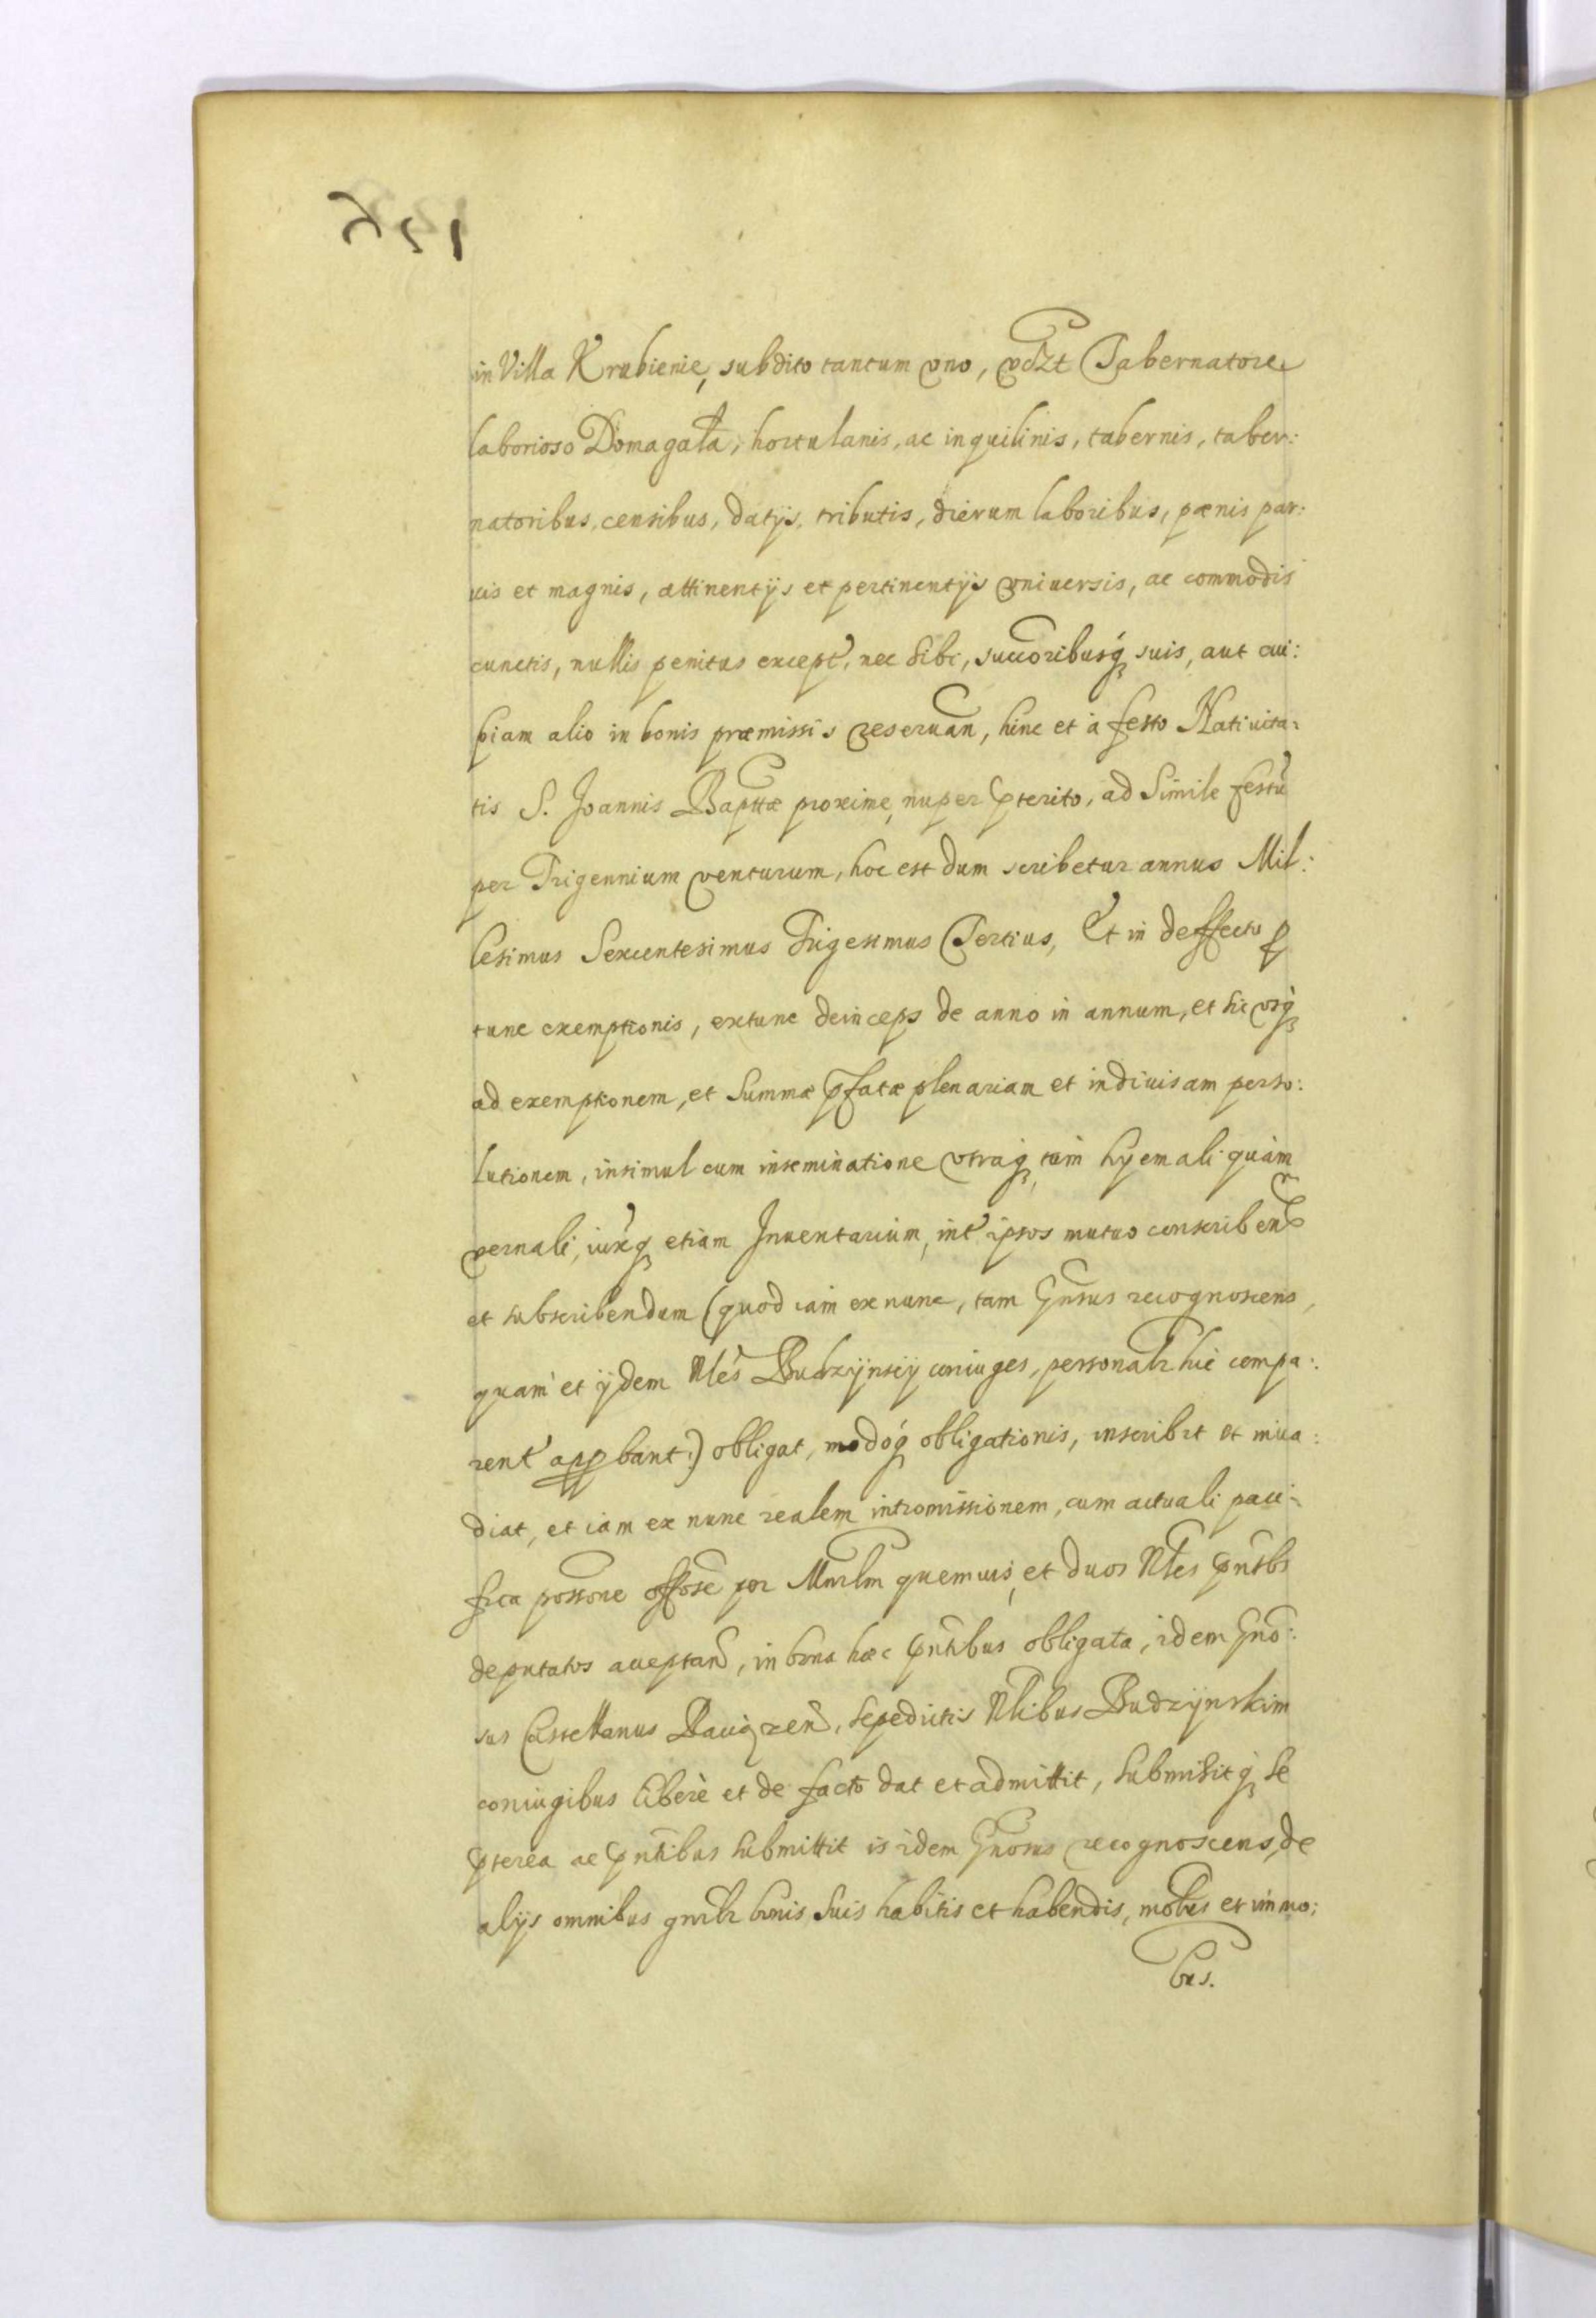 in Villa Krubienie, subdito tantum vno, vdzt Tabernatore
laborioso Domagała, hortulanis, ac inquilinis, tabernis, taber:
natoribus, censibus, datijs, tributis, dierum laboribus, pænis par:
uis et magnis, attinentijs et pertinentijs vniuersis, ac commodis
cunctis, nullis penitus except, nec sibi, succoribusq suis, aut cui:
piam alio in bonis præmissis reseruan, hinc et à festo Natiuita:
tis S. Joannis Bapttæ proxime, nuper pterito, ad Simile festu
per Trigennium venturum, hoc est dum scribetur annus Mil:
lesimus Sexcentesimus Trigesimus Tertius, Et in deffectu p
tunc exemptionis, extunc deinceps de anno in annum, et sic vsq
ad exemptionem, et Summæ pfatæ plenariam et indiuisam perso:
lutionem, insimul cum inseminatione vtraq, tàm hyemali quàm
vernali, iuxtq etiam Inuentarium, int ipsos mutuo conscribend
et subscribendum (quod iam ex nunc, tam Gnsus recognoscens,
quam et ijdem Nles Budzijnscij coniuges, personalr hic compa:
rent appbant:) obligat, modoq obligationis, inscribit et inua:
diat, et iam ex nunc realem intromissionem, cum actuali paci:
fica possone offose per Mnrlm quemuis, et duos Nles pntbs
deputatos acceptand, in bona hæc pntibus obligata, idem Gno:
sus Castellanus Raciązen, sepedictis Nlibus Budzijnskim
coniugibus liberè et de facto dat et admittit, submisitq se
pterea ac pntibus submittit is idem Gnosus recognoscens, de
alijs omnibus gnrlr bonis suis habitis et habendis, mobus et immo:
bus.